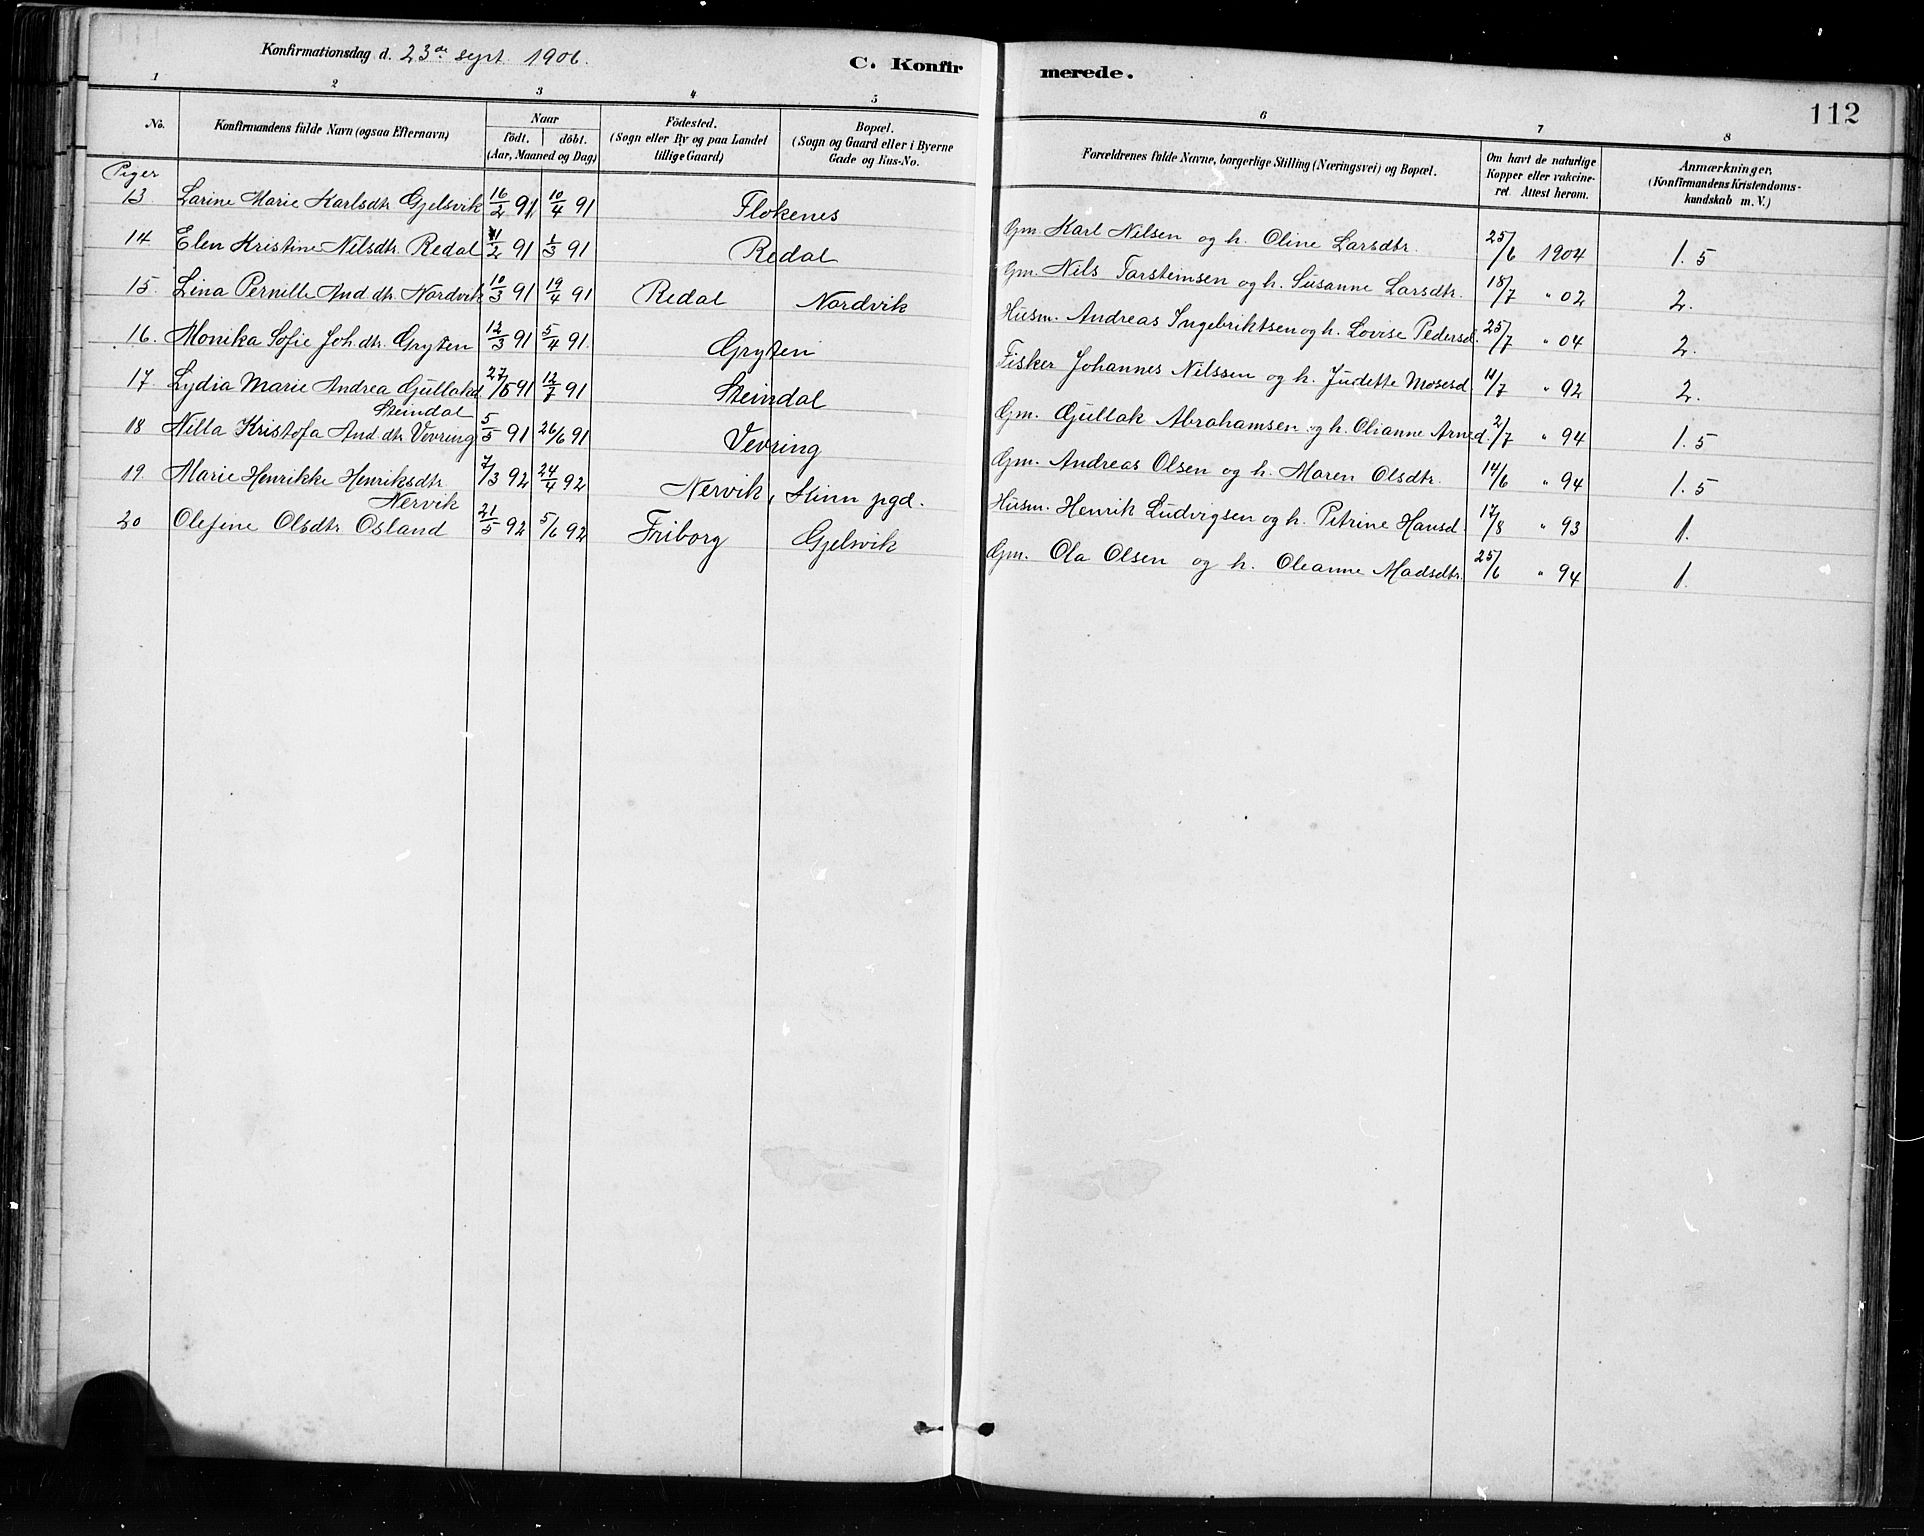 Konfirmationsdag d. 23de sept. 1906. C. Konfirmerede. 112
1 2 3 4 5 6 7 8
No. Konfirmandens fulde Navn (ogsaa Efternavn) Naar födt. döbt. (Aar, Maaned og Dag) Födested. (Sogn eller By og paa Landet tillige Gaard) Bopæl. (Sogn og Gaard eller i Byerne Gade og Hus-No. Forældrenes fulde Navne, borgerlige Stilling (Næringsvei) og Bopæl. Om havt de naturlige Kopper eller vakcineret. Attest herom. Anmærkninger. (Konfirmandens Kristendomskundskab m. V.)
Piger
13. Larine Marie Karlsdtr. Gjelsvik 16/2 91 10/4 91 Flokenes Gm. Karl Nilsen og h. Oline Larsdtr. 25/6 1904 1.5
14 Elen Kristine Nilsdtr. Redal 11/2 91 1/3 91 Redal Gm. Nils Torsteinsen og h. Susanne Larsdtr. 18/7 " 02 2.
15. Lina Pernille And.dtr. Nordvik 10/3 91 19/4 91 Redal Nordvik Husm. Andreas Ingebriktsen og h. Lovise Pedersd. 25/7 " 04 2.
16. Monika Sofie Joh.dtr. Gryten 12/3 91 5/4 91. Gryten Fisker Johannes Nilssen og h. Judette Mosesd. 11/7 " 92 2.
17 Lydia Marie Andrea Gullakd. 27/5 91 12/7 91 Steindal Gm. Gullak Abrahamsen og h. Olianne Arned. 2/7 " 94 1.5
Steindal
18 Nilla Kristofa And.dtr. Vevring 5/5 91 26/6 91 Vevring Gm. Andreas Olsen og h. Maren Olsdtr. 14/6 " 94 1.5
19. Marie Henrikke Henriksdtr. 7/3 92 24/4 92 Nervik, Kinn pgd. Husm. Henrik Ludvigsen og h. Petrine Hansd. 17/8 " 93 1.
Nervik
20 Olefine Olsdtr. Osland 21/5 92 5/6 92 Friborg Gjelsvik Gm. Ola Olsen og h. Oleanne Madsdtr. 25/6 " 94 1.